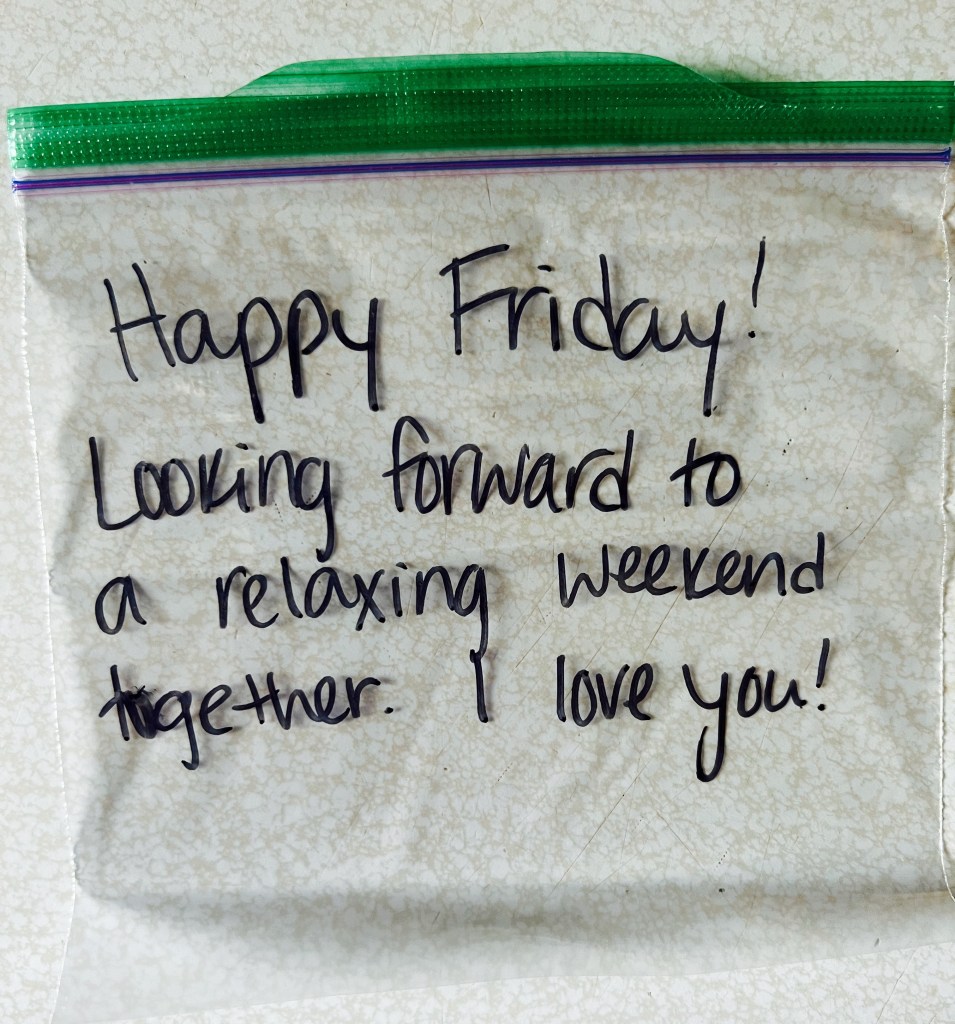 Happy Friday!
Looking forward to
a relaxing weekend
together. I love you!